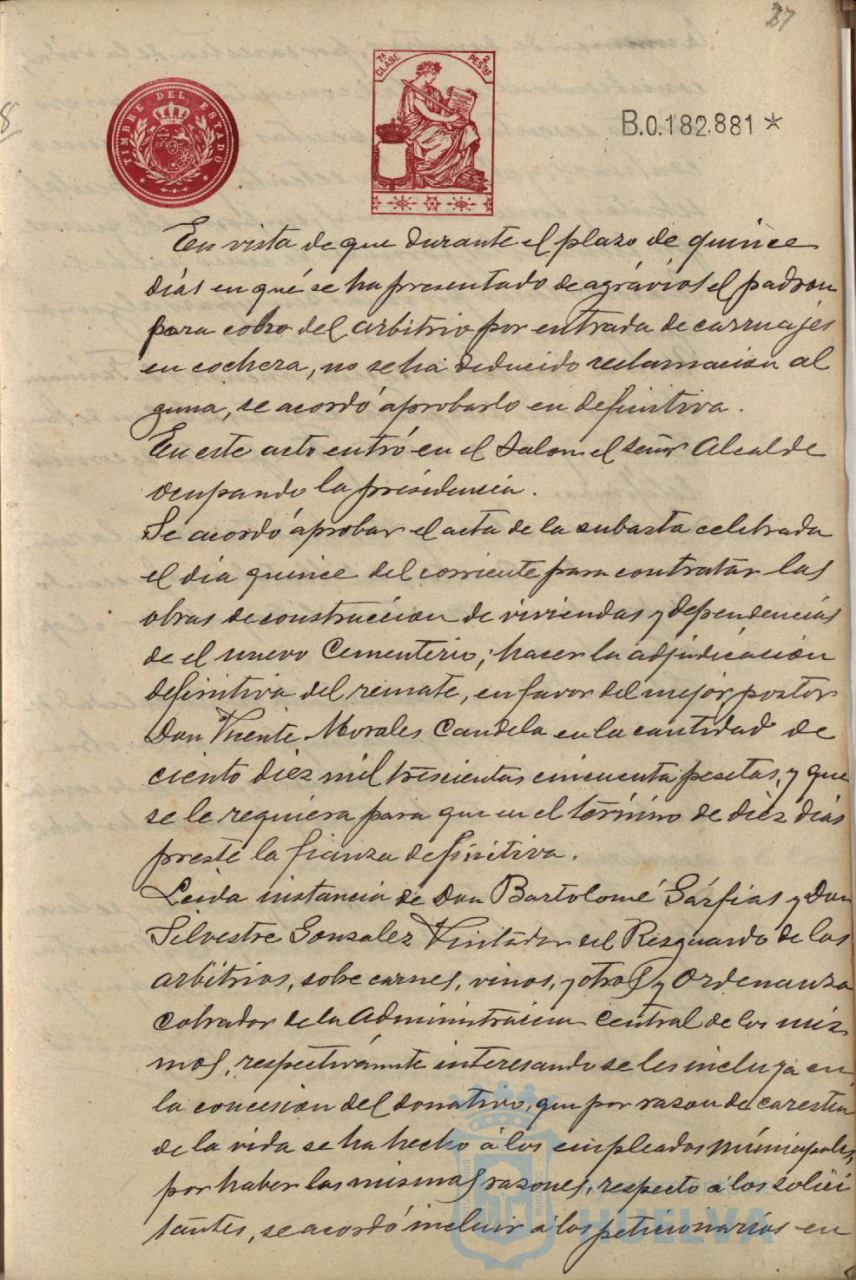 27
8
TIMBRE DEL ESTADO
7ª CLASE
2 PESTAS
B.0.182.881*
En vista de que durante el plazo de quince
días en qué se ha presentado de agrávios el padron
para cobro del arbitrio por entrada de carruajes
en cochera, no se ha deducido reclamacion al
guna, se acordó aprobarlo en definitiva.
En este acto entró en el Salon el señor Alcalde
ocupando la presidencia.
Se acordó aprobar el acta de la subasta celebrada
el día quince del corriente para contratar las
obras de construccion de viviendas y dependencias
de el nuevo Cementerio; hacer la adjudicación
definitiva del remate, en favor del mejor postor
Don Vicente Morales Candela en la cantidad de
ciento diez mil trescientas cincuenta pesetas, y que
se le requiera para que en el término de diez días
preste la fianza definitiva.
Leida instancia de Don Bartolomé Gárfias y Don
Silvestre Gonzalez Visitador del Resguardo de los
arbitrios, sobre carnes, vinos, y otros y Ordenanza
Cobrador de la Administracion Central de los mis
mos, respectivamente interesando se les incluya en
la concesion del donativo, que por razon de carestia
de la vida se ha hecho á los empleados municipales,
por haber las mismas razones, respecto á los solici
tantes, se acordó incluir á los peticionarios en
HUELVA